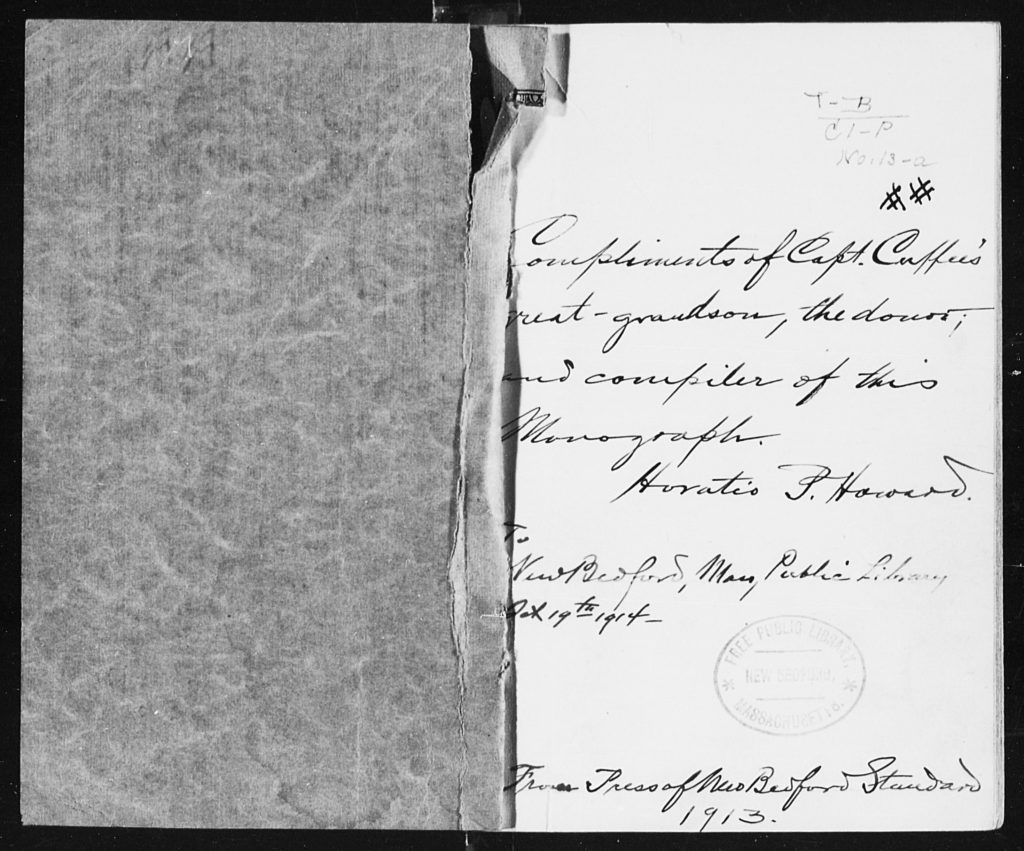 T-B
C1-P
No. 13-a
##
Compliments of Capt. Cuffee's
great-grandson, the donor;
and compiler of this
Monograph.
Horatio P. Howard.
To
New Bedford, Mass, Public Library
Oct 19th 1914-
FREE PUBLIC LIBRARY,
NEW BEDFORD,
MASSACHUSETTS.
From Press of New Bedford Standard
1913.